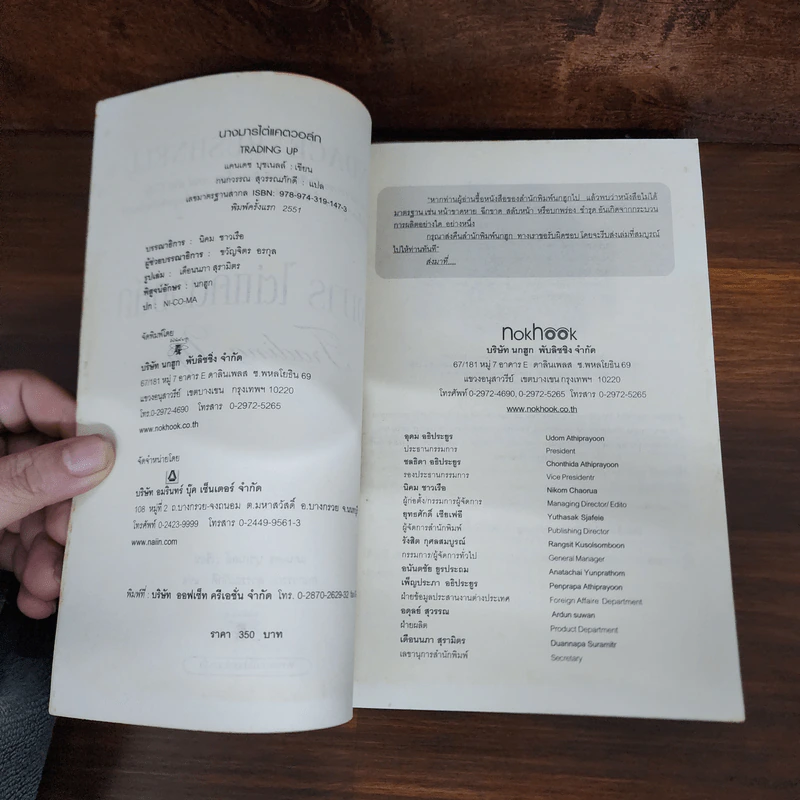 นางมารไต่แคตวอล์ก
TRADING UP
แคนเดซ บุชเนลล์ : เขียน
กนกวรรณ สุวรรณภักดี : แปล
เลขมาตรฐานสากล ISBN: 978-974-319-147-3
พิมพ์ครั้งแรก 2551
บรรณาธิการ : นิคม ชาวเรือ
ผู้ช่วยบรรณาธิการ : ขวัญจิตร อรกุล
รูปเล่ม : เตือนนภา สุรามิตร
พิสูจน์อักษร : นกฮูก
ปก : NI-CO-MA
จัดพิมพ์โดย
บริษัท นกฮูก พับลิชชิ่ง จำกัด
67/181 หมู่ 7 อาคาร E ดาลินเพลส ซ.พหลโยธิน 69
แขวงอนุสาวรีย์ เขตบางเขน กรุงเทพฯ 10220
โทร.0-2972-4690 โทรสาร 0-2972-5265
www.nokhook.co.th
จัดจำหน่ายโดย
บริษัท อมรินทร์ บุ๊ค เซ็นเตอร์ จำกัด
108 หมู่ที่ 2 ถ.บางกรวย-จงถนอม ต.มหาสวัสดิ์ อ.บางกรวย
โทรศัพท์ 0-2423-9999 โทรสาร 0-2449-9561-3
www.naiin.com
พิมพ์ที่ : บริษัท ออฟเซ็ท ครีเอชั่น จำกัด โทร. 0-2870-2629-32
ราคา 350 บาท
"หากท่านผู้อ่านซื้อหนังสือของสำนักพิมพ์นกฮูกไป แล้วพบว่าหนังสือไม่ได้
มาตรฐาน เช่น หน้าขาดหาย ฉีกขาด สลับหน้า หรือบกพร่อง ชำรุด อันเกิดจากกระบวน
การผลิตอย่างใด อย่างหนึ่ง
กรุณาส่งคืนสำนักพิมพ์นกฮูก ทางเราขอรับผิดชอบ โดยจะรีบส่งเล่มที่สมบูรณ์
ไปให้ท่านทันที"
ส่งมาที่....
nokhook
บริษัท นกฮูก พับลิชชิ่ง จำกัด
67/181 หมู่ 7 อาคาร E ดาลินเพลส ซ.พหลโยธิน 69
แขวงอนุสาวรีย์ เขตบางเขน กรุงเทพฯ 10220
โทรศัพท์ 0-2972-4690, 0-2972-5265 โทรสาร 0-2972-5265
www.nokhook.co.th
อุดม อธิประยูร Udom Athiprayoon
ประธานกรรมการ President
ชลธิดา อธิประยูร Chonthida Athiprayoon
รองประธานกรรมการ Vice Presidentr
นิคม ชาวเรือ Nikom Chaorua
ผู้ก่อตั้ง/กรรมการผู้จัดการ Managing Director/ Edito
ยุทธศักดิ์ เซียเฟอี Yuthasak Sjafeie
ผู้จัดการสำนักพิมพ์ Publishing Director
รังสิต กุศลสมบูรณ์ Rangsit Kusolsomboon
กรรมการ/ผู้จัดการทั่วไป General Manager
อนันตชัย ยูรประถม Anatachai Yunprathom
เพ็ญประภา อธิประยูร Penprapa Athiprayoon
ฝ่ายข้อมูลประสานงานต่างประเทศ Foreign Affaire Department
อดุลย์ สุวรรณ Ardun suwan
ฝ่ายผลิต Product Department
เตือนนภา สุรามิตร Duannapa Suramitr
เลขานุการสำนักพิมพ์ Secretary